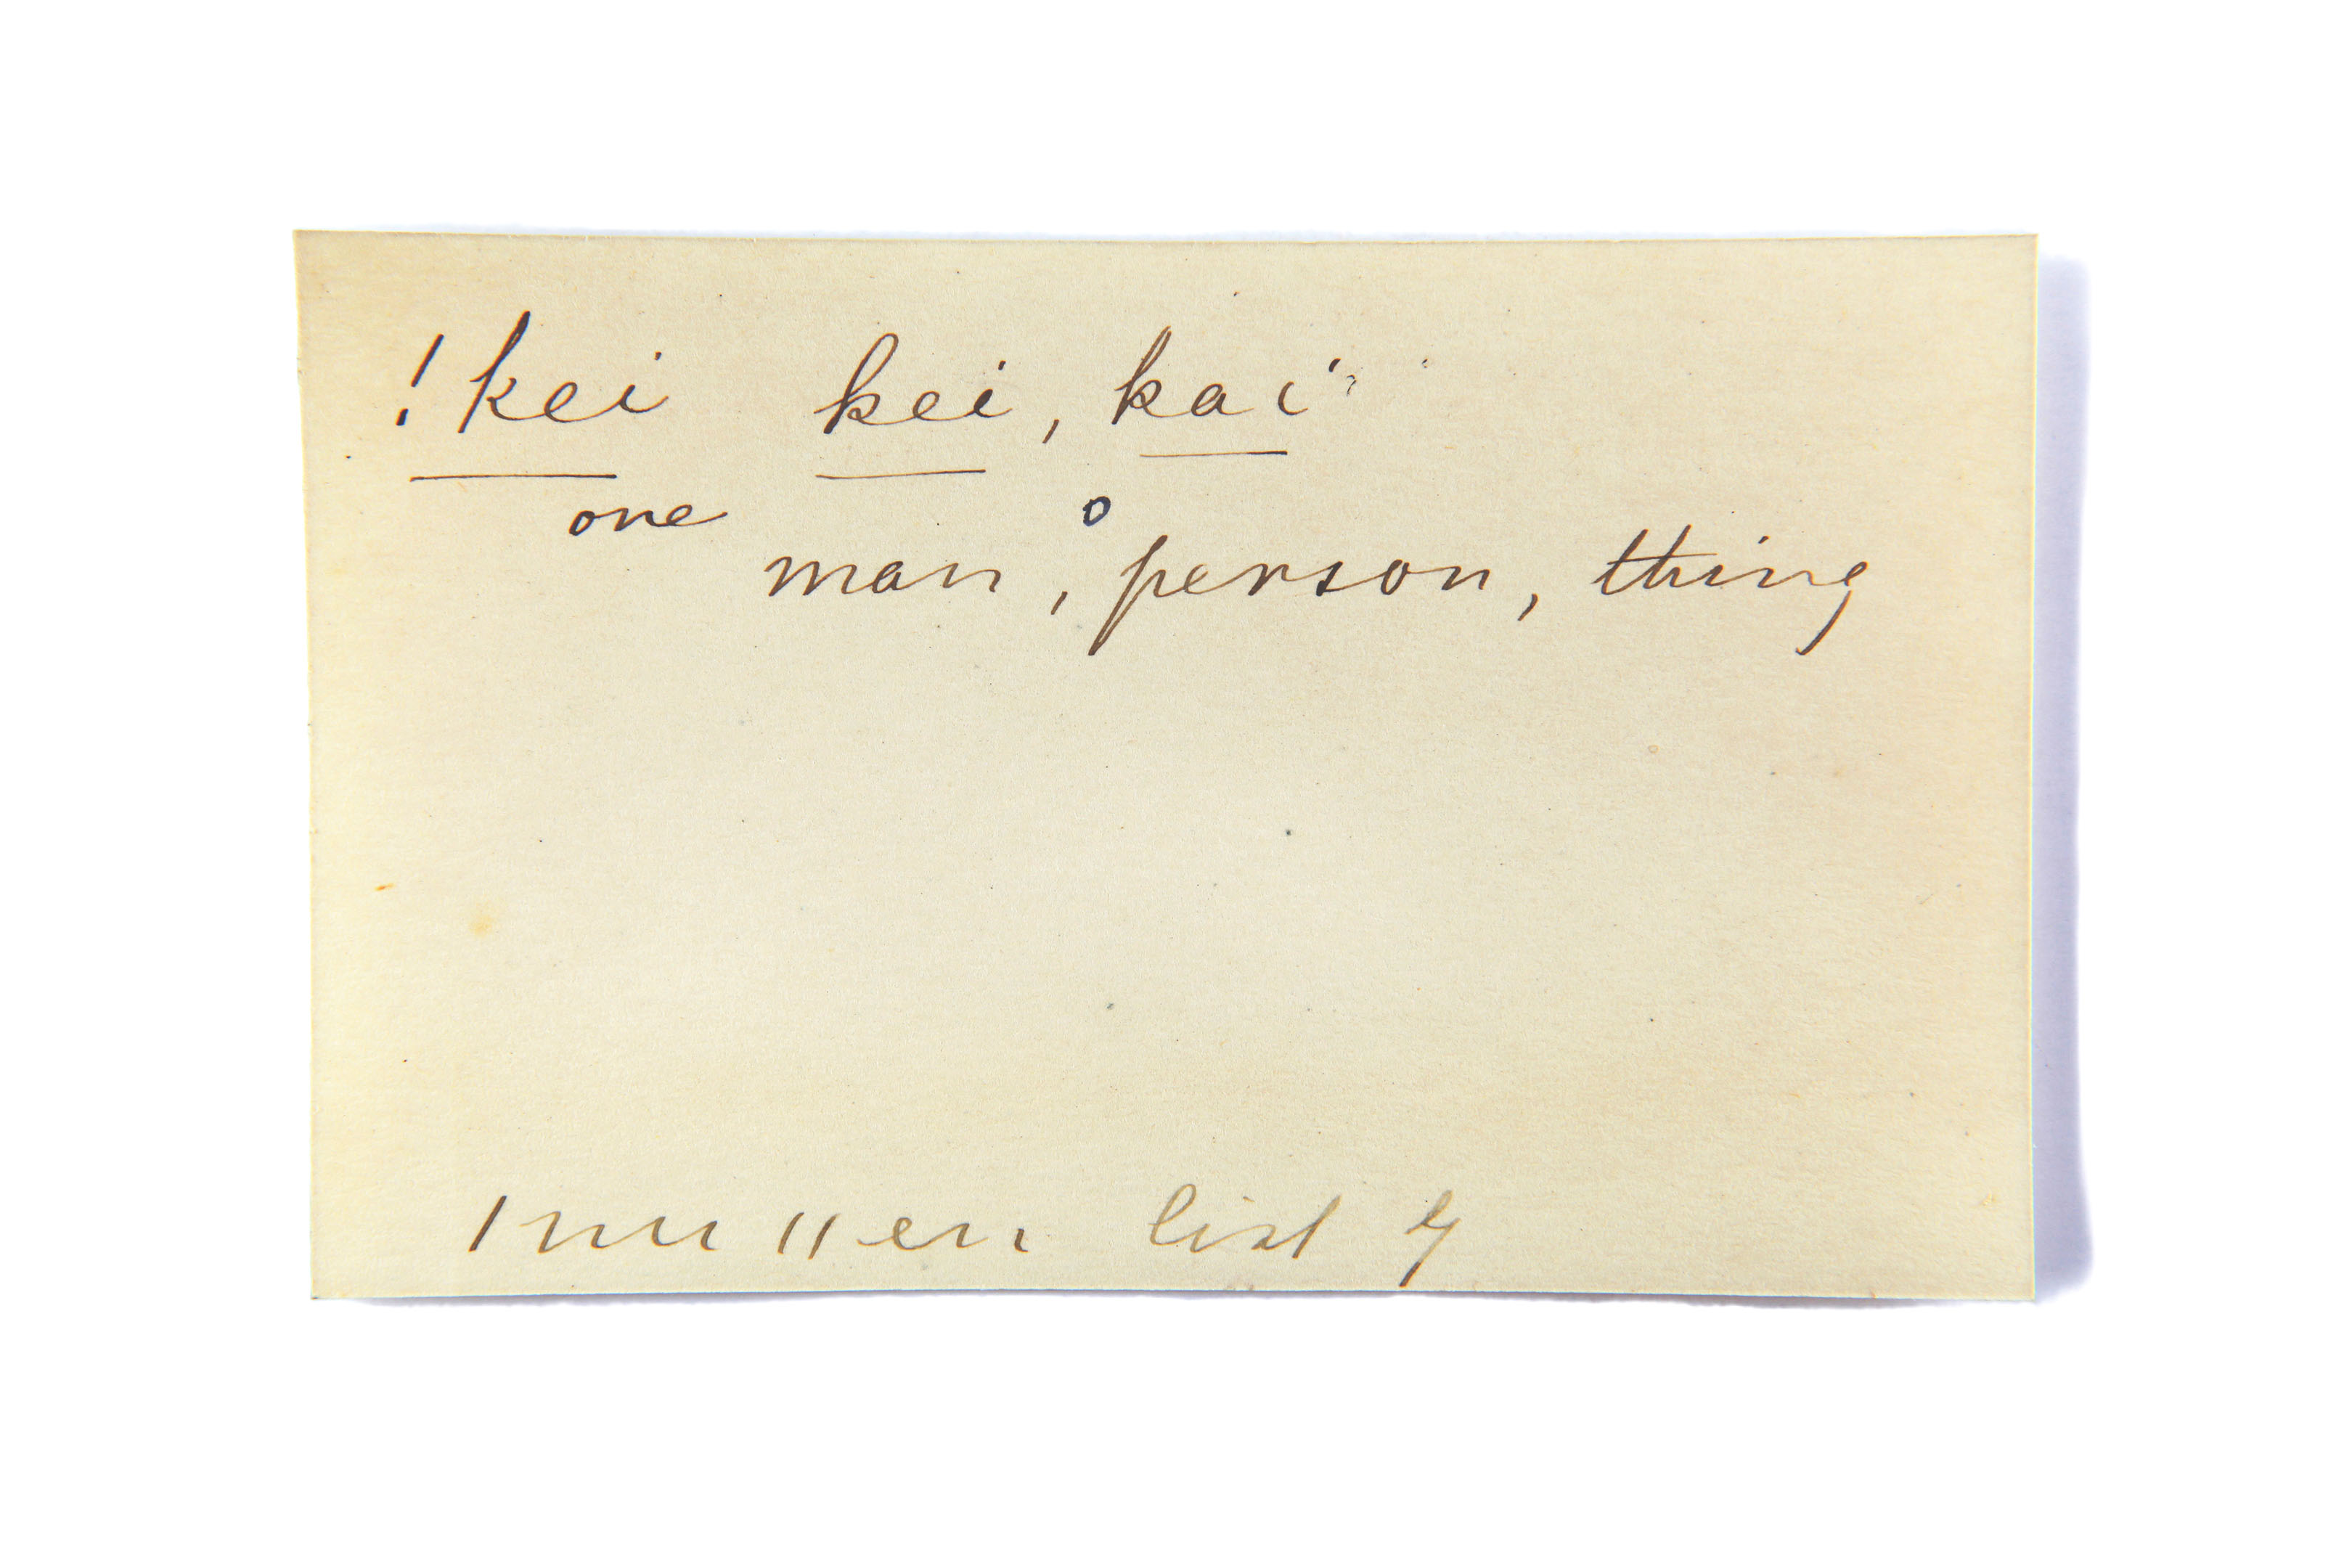 !kei kei, kai
one
man, person, thing
list